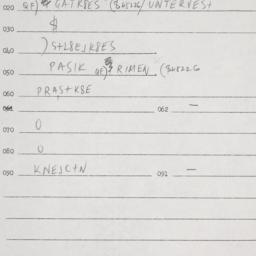 020 QF) GATK8ES (BU822G/UNTERVEST
$
040 )S+L8EJK8ES
050 PASIK QF) RIMEN (BU822G
060 PRAS+K8E
061 062 —
070 0
080 0
090 KNEJC+N 091 —